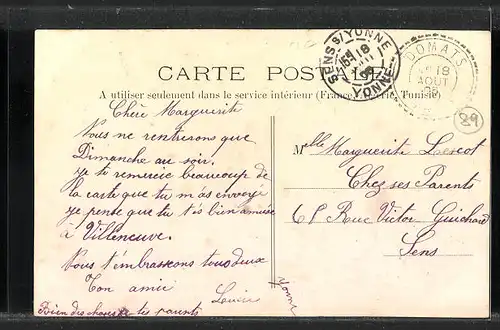 CARTE POSTALE
A utiliser seulement dans le service intérieur (France, Algérie, Tunisie)
SENS S/YONNE
18
YONNE
DOMATS
18
AOUT
89
Chère Marguerite
Nous ne rentrerons que
Dimanche au soir.
je te remercie beaucoup de
la carte que tu m'as envoyée
je pense que tu t'es bien amusée
à Villeneuve.
Nous t'embrassons tous deux
Ton amie
Lucie
Bien des choses à tes parents
Melle Marguerite Lescot
Chez ses Parents
Rue Victor Guichard
Sens
Yonne